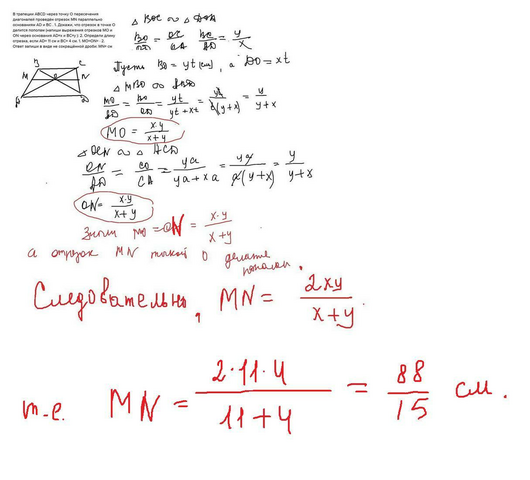 В трапеции ABCD через точку O пересечения
диагоналей проведен отрезок MN параллельно
основаниям AD и BC. 1. Докажи, что отрезок в точке O
делится пополам (напиши выражения отрезков MO и
ON через основания AD=x и BC=y.) 2. Определи длину
отрезка, если AD= 11 см и BC= 4 см. 1. MO=ON= . 2.
Ответ запиши в виде не сокращённой дроби: MN= см.
B C
M O N
A D
△ BOC ∞ △ DOA
BO/OD = OC/OA BC/AD = y/x
Пусть BO = yt (см), а DO = xt
△ MBO ∞ △ ABD
MO/AD = BO/BD = yt/(yt + xt) = yt/(t(y+x)) = y/(y+x)
MO = x·y/(x+y)
△ OCN ∞ △ ACD
ON/AD = CO/CA = ya/(ya + xa) = ya/(a(y+x)) = y/(y+x)
ON = x·y/(x+y)
Значит MO = ON = x·y/(x+y)
а отрезок MN точкой O делится
пополам.
Следовательно, MN = 2xy/(x+y).
т.е. MN = 2·11·4/(11+4) = 88/15 см.